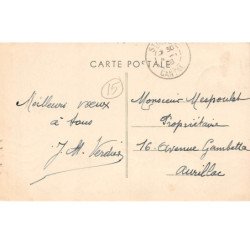 CARTE POSTALE
15
Meilleurs vœux
à tous
J. M. Verdier
Monsieur Mespoulet
Propriétaire
16 Avenue Gambetta
Aurillac